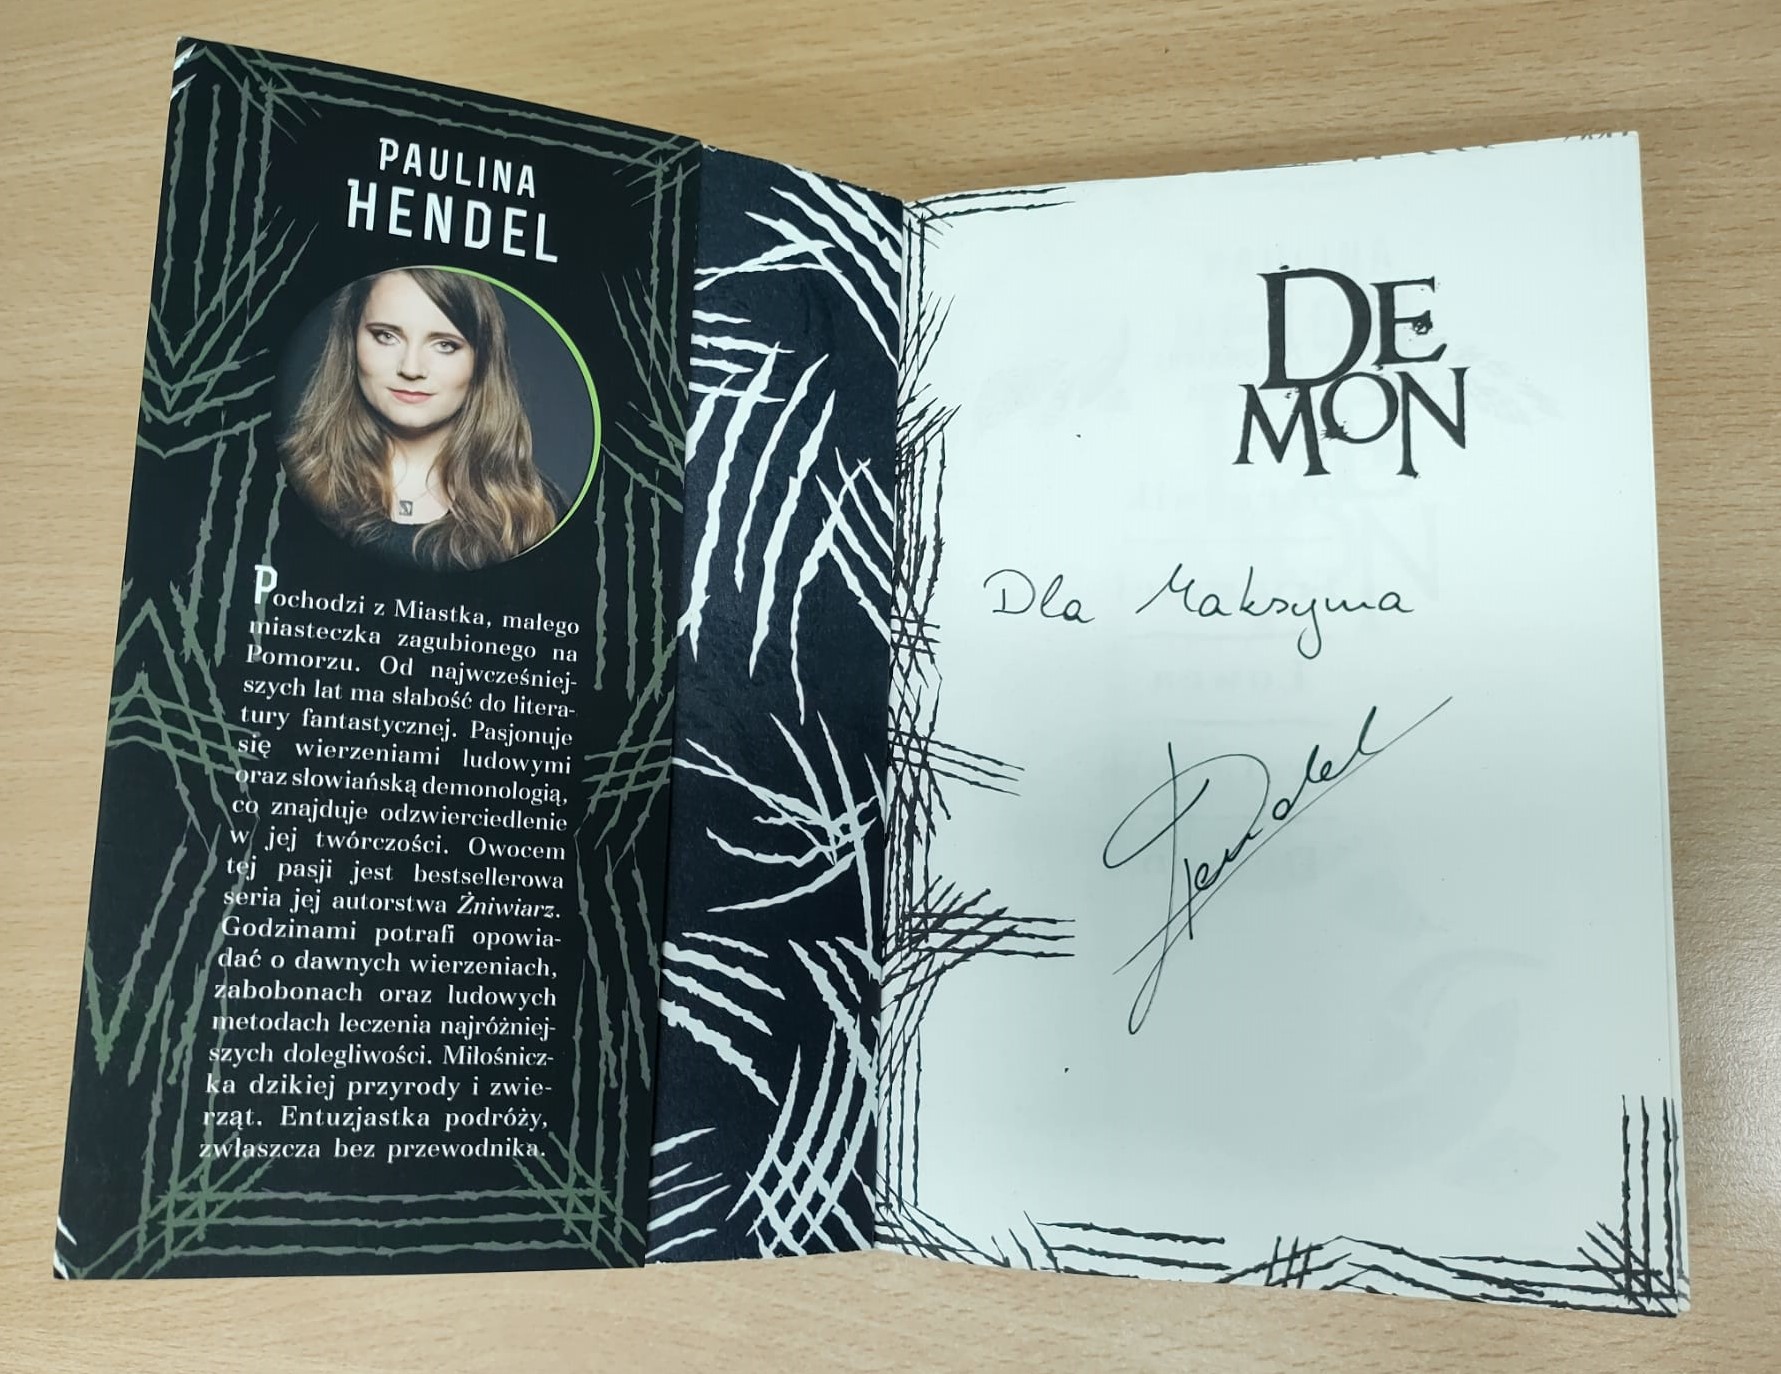 PAULINA
HENDEL
Pochodzi z Miastka, małego
miasteczka zagubionego na
Pomorzu. Od najwcześniej-
szych lat ma słabość do litera-
tury fantastycznej. Pasjonuje
się wierzeniami ludowymi
oraz słowiańską demonologią,
co znajduje odzwierciedlenie
w jej twórczości. Owocem
tej pasji jest bestsellerowa
seria jej autorstwa Żniwiarz.
Godzinami potrafi opowia-
dać o dawnych wierzeniach,
zabobonach oraz ludowych
metodach leczenia najróżniej-
szych dolegliwości. Miłośnicz-
ka dzikiej przyrody i zwie-
rząt. Entuzjastka podróży,
zwłaszcza bez przewodnika.
DE
MON
Dla Maksyma
Hendel